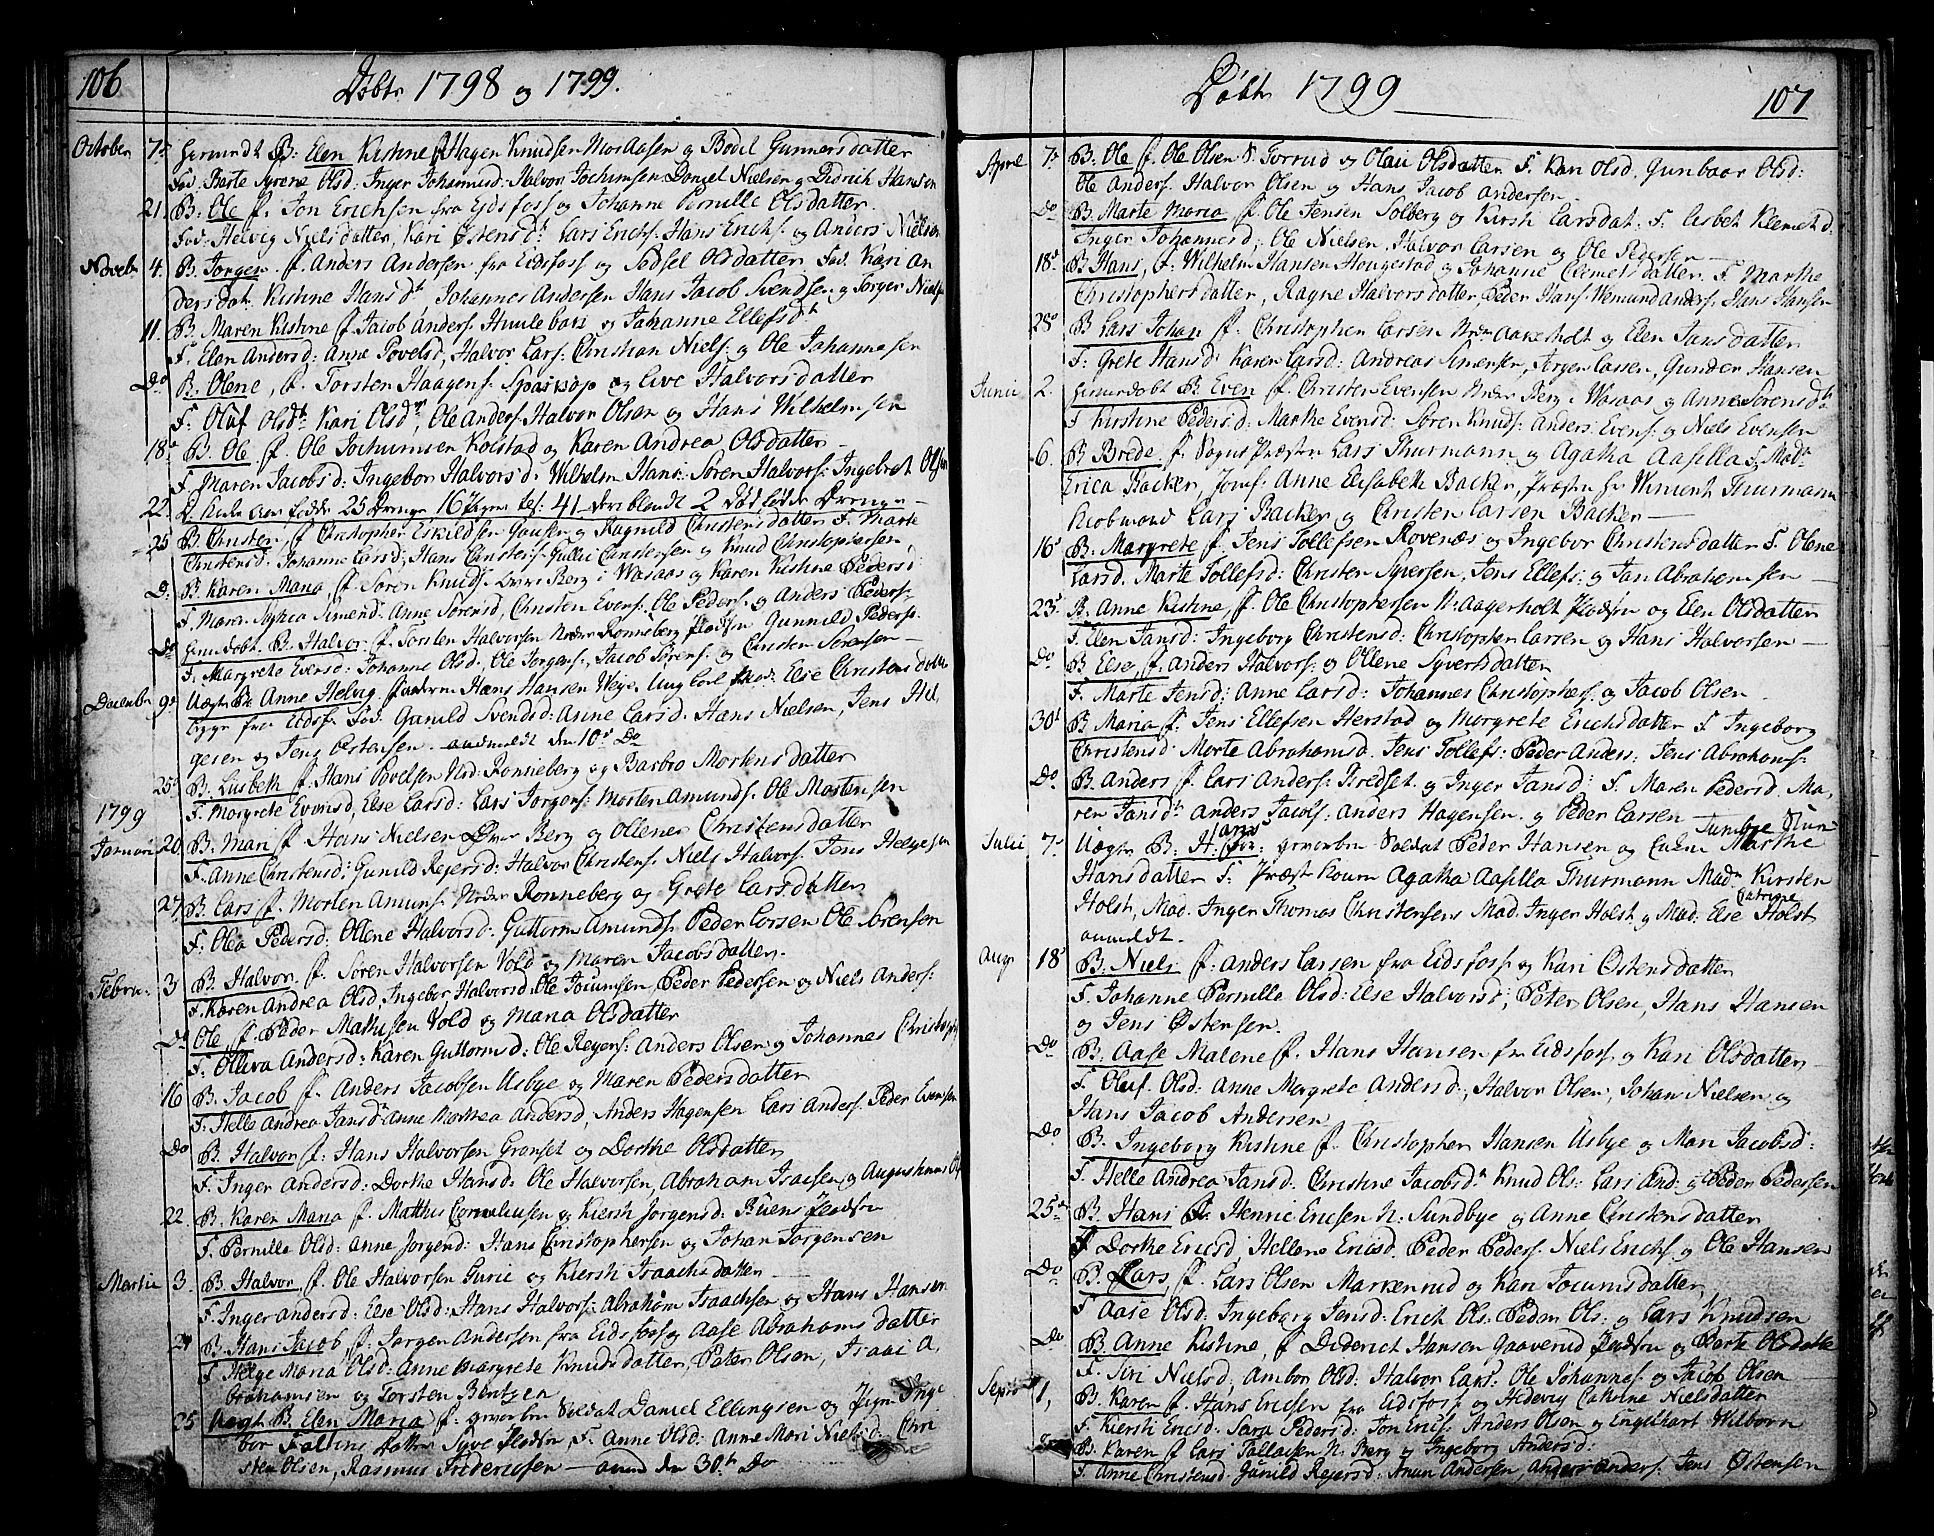 106
Döbte 1798 og 1799.
October 7de hiemdt B: Elen Kistine f Hagen Knudsen Mosaasen og Bodil Gunnersdatter
Fad. Berte Syrene Olsd: Inger Johannisd: Halvor Jochumsen Daniel Nielsen og Didrich Hansen
21. B: Ole f. Jon Erichsen fra Eidsfoss og Johanne Pernille Olsdatter.
Fad: Helvig Nielsdatter, Kari Østensdr Lars Erichs: Hans Erichs: og Anders Nielsen
Novebr 4. B. Jørgen f. Anders Andersen fra Eidsfoss og Sidsel Olsdatter Fad. Kari An
dersdat. Kistine Hansdt, Johannes Andersen Hans Jacob Svendsen og Jørger Nielsen
11. B. Maren Kistine f. Jacob Anders: Hvulebars og Johanne Ellefsdt
F. Elen Andersd: Anne Povelsd, Halvor Lars: Christian Niels: og Ole Johannesen
Do B. Olene, f. Torsten Haagens: Spaskop og Live Halvorsdatter
F. Oluf Olsdt Kari Olsdr, Ole Anders: Halvor Olsen og Hans Wilhelmsen
18de B. Ole f. Ole Jochumsen Kolstad og Karen Andrea Olsdatter
F. Maren Jacobsd: Ingebor Halvorsd: Wilhelm Hans: Søren Halvors: Ingebret Olsen
22. fødde 25 Drenge 16 Piger tils: 41 deriblandt 2 Dødfødde Drenge
25 B Christen f Christopher Eskildsen Gausen og Ragnild Christensdatter F. Marte
Christensd: Johanne Larsd, Hans Christens: Gullic Christensen og Knud Christophersen
D. B. Karen Maria f Søren Knuds: Berg i Wasaas og Karen Kistine Peders:
F. Maren Sophia Simensd: Anne Sørensd, Christen Evens: Ole Peders: og Anders Peders:
Do hiemdobt B. Halvor f. Torsten Halvorsen Nedre Rønneberg Pladsen Gunnild Peders:
F. Margrete Evensd: Johanne Olsd. Ole Jørgens: Jacob Sørens: og Christen Sørensen
Decembr 9de Uægte B. Anne Helvig Hans Hansen Weje. Ung Carl Mod. Else Christensdatter
fra Eidsf: Fad. Gunild Svendsd: Anne Larsd. Hans Nielsen, Jens Hel
gesen og Jens Østensen. anmeldt den 10de Do
25de B. Lisbeth f. Hans Povelsen Ned: Rønneberg og Barbro Mortensdatter
F. Margrete Evensd, Else Larsd: Lars Jørgens: Morten Amunds: Ole Mortensen
1799
Januari 20. B. Mari f. Hans Nielsen Øvre Berg og Ollener Christensdatter
F. Anne Christensd: Gunild Rejersd: Halvor Christens: Niels Halvors: Jens Helgesen
27. B. Lars f. Morten Amuns: Nedre Rønneberg og Grete Larsdatter
F. Olea Pedersd: Ollene Halvorsd: Guttorm Amunds: Peder Larsen Ole Sørensen
Februr. 3 B. Halvor f. Søren Halvorsen Vold og Maren Jacobsdatter
F. Karen Andrea Olsd, Ingebor Halvorsd. Ole Jocumsen, Peder Pedersen og Niels Anders:
Do Ole, f. Peder Mathisen Vold og Maria Olsdatter
F. Olliva Andersd: Karen Guttormsd: Ole Rejers: Anders Olsen og Johannes Christoph
16 B. Jacob f. Anders Jacobsen Usbye og Maren Pedersdatter
F. Helle Andrea Jansd: Anne Mathea Andersd, Anders Hagensen Lars Anders: Peder Evensen
Do B. Halvor f. Hans Halvorsen Gronset og Dorthe Olsdatter
F. Inger Andersd: Dorthe Hansd: Ole Halvorsen, Abraham Isacsen og Augustinus
22. B. Karen Maria f. Matthis Corneliusen og Kiersti Jørgensd: Bäens Pladsen
F. Pernille Olsd: Anne Jørgend: Hans Christophersen og Johan Jørgensen
Martie 3. B. Halvor f. Ole Halvorsen Gurie og Kiersti Isaachsdatter
F. Inger Andersd: Else Olsd: Hans Halvors: Abraham Isaachsen og Hans Hansen
24 B. Hans Jacob, f. Jørgen Andersen fra Eidsfoss og Aase Abrahamsdatter
F Helge Maria Olsd: Anne Margrete Knudsdatter, Peter Olsen, Isaac A,
brahamsen og Torsten Bentzen
25 Uægt B. Elen Maria f: gevorbn Soldat Daniel Ellingsen og Pigen Inge
bor Fallins datter Syve Pladsen, F. Anne Olsd: Anne Mari Nielsd: Chri
sten Olsen, Rasmus Fridericksen — anm den 30te Do
107
Døbte 1799
April 7de B. Ole f. Ole Olsen S. Forrud og Olau Olsdatter F. Kari Olsd. Gunbaar Olsd:
Ole Anders: Halvor Olsen og Hans Jacob Andersen
Do B. Marte Maria f. Ole Jensen Solberg og Kirsti Larsdat. F. Lisbet Klemetd:
Inger Johannesd; Ole Nielsen, Halvor Larsen og Ole Pedersen
18de B Hans, f. Wilhelm Hansen Hougestad og Johanne Clemetsdatter. F. Marthe
Christophersdatter, Ragne Halvorsdatter, Peder Hans: Wemund Anders: Hans Hansen
28de B Lars Johan f. Christopher Larsen Nedre Aakerholt og Elen Jansdatter
F: Grete Hansd: Karen Larsd: Andreas Simensen, Jørgen Larsen, Gunder Hansen
Junii 2. hiemdøbt B. Even f. Christen Evensen Nedre Berg i Wasaas og Anne Sørensdt:
F Kirstine Pedersd: Marthe Evensd: Søren Knuds: Anders: Evens: og Niels Evensen
6. B Brede f. Sogne Præsten Lars Thurmann og Agatha Aasilla F. Madr
Erica Backer, Jomf: Anne Elisabeth Backer, Præsten Hr Winient Thurmann
Kiøbmand Lars Backer og Christen Larsen Backer
16de B. Margrete f. Jens Tollefsen Rovenæs og Ingebor Christensdatter F. Olene
Larsd. Marte Tollefsd: Christen Syversen, Jens Ellefs: og Jan Abrahamsen
23de B. Anne Kistine, f. Ole Christophersen N: Aagerholt Pladsen og Elen Olsdatter
F. Elen Jansd: Ingeborg Christensd: Christopher Larsen og Hans Halvorsen
Do B. Else, f. Anders Halvors: og Ollene Syversdatter
F. Marte Jensd: Anne Larsd: Johannes Christophers: og Jacob Olsen
30te B Maria f. Jens Ellefsen Herstad og Margrete Erichsdatter F. Ingeborg
Christensd: Marte Abrahamsd. Jens Tollefs: Peder Anders: Jens Abrahams:
Do B. Anders f. Lars Anders: Bredset og Inger Jansd: F. Maren Pedersd. Ma,
ren Jansdt Anders Jacobs: Anders Hagensen. og Peder Larsen
Julii 7de Uægte B. Hans for: gevorben Soldat Peder Hansen og Marthe
Hansdatter F. Præst Kouen Agatha Aasilla Thurmann Madn Kirsten
Holst, Mad. Inger Thomas Christensens Mad. Inger Holst og Mad: Else Catrine Holst
anmeldt.
Augr 18de B. Niels f. Anders Larsen fra Eidsfoss og Kari Østensdatter
F. Johanne Pernille Olsd: Else Halvorsd; Peter Olsen, Hans Hansen
og Jens Østensen.
Do B. Aase Malene f. Hans Hansen fra Eidsfoss og Kari Olsdatter
F Oluf. Olsd: Anne Margrete Andersd:, Halvor Olsen, Johan Nielsen og
Hans Jacob Andersen
Do B. Ingeborg Kistine f. Christopher Hansen Usbye og Mari Jacobsd:
F. Helle Andrea Jansd: Christine Jacobsdr Knud Ols: Lars And: og Peder Pedersen
25de B. Hans f. Henric Ericsen N: Sundbye og Anne Christensdatter
F Dorthe Ericsd, Hellene Ericsd: Peder Peders: Niels Erichs: og Ole Hansen
Do B. Lars f. Lars Olsen Markerud og Kari Jocumsdatter
F Aase Olsd: Ingeborg Jensd: Erich Ols: Peder Ols: og Lars Knudsen
Do B. Anne Kistine, f Diderich Hansen Gaaverud Pladsen og Berte Olsdatte
F. Siri Nielsd; Ambor Olsd: Halvor Lars: Ole Johannes: og Jacob Olsen
Septr 1, B. Karen f. Hans Ericsen fra Eidsfoss og Hedevig Catrine Nielsdatter
F Kiersti Ericsd: Sara Pedersd: Jon Erics: Anders Olsen og Engelhart Wilborn
8 B. Karen f Lars Tollaesen N. Berg og Ingeborg Andersd:
F. Anne Christensd: Gunild Rejersd: Amun Andersen, Anders Anders: Jens Østensen